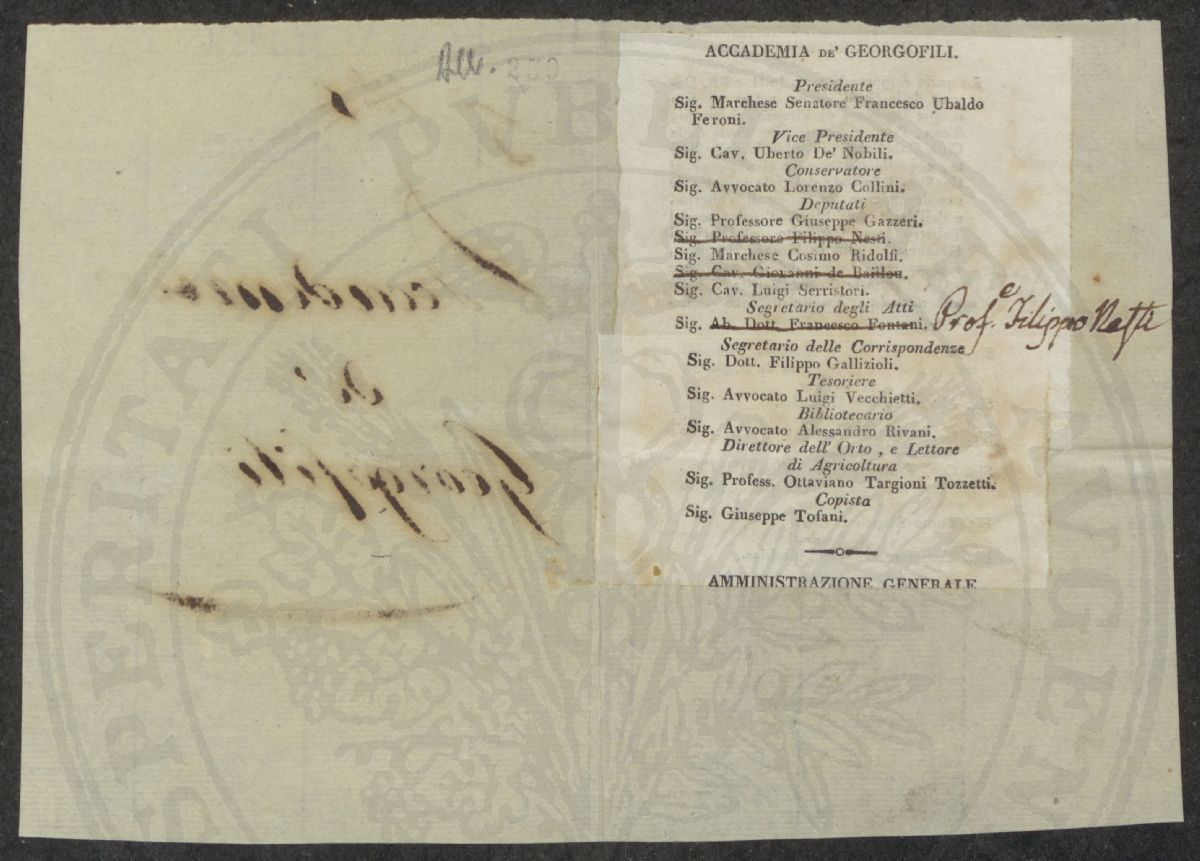 All. 230
ACCADEMIA DE' GEORGOFILI.
Presidente
Sig. Marchese Senatore Francesco Ubaldo
Feroni.
Vice Presidente
Sig. Cav. Uberto De' Nobili.
Conservatore
Sig. Avvocato Lorenzo Collini.
Deputati
Sig. Professore Giuseppe Gazzeri.
Sig. Professore Filippo Nesti.
Sig. Marchese Cosimo Ridolfi.
Sig. Cav. Giovanni de Baillou.
Sig. Cav. Luigi Serristori.
Segretario degli Atti
Sig. Ab. Dott. Francesco Fontani. Prof.e Filippo Nesti
Segretario delle Corrispondenze
Sig. Dott. Filippo Gallizioli.
Tesoriere
Sig. Avvocato Luigi Vecchietti.
Bibliotecario
Sig. Avvocato Alessandro Rivani.
Direttore dell' Orto, e Lettore
di Agricoltura
Sig. Profess. Ottaviano Targioni Tozzetti.
Copista
Sig. Giuseppe Tofani.
AMMINISTRAZIONE GENERALE
di
Georgofili
PROSPERITATI PUBLICAE AUGENDAE